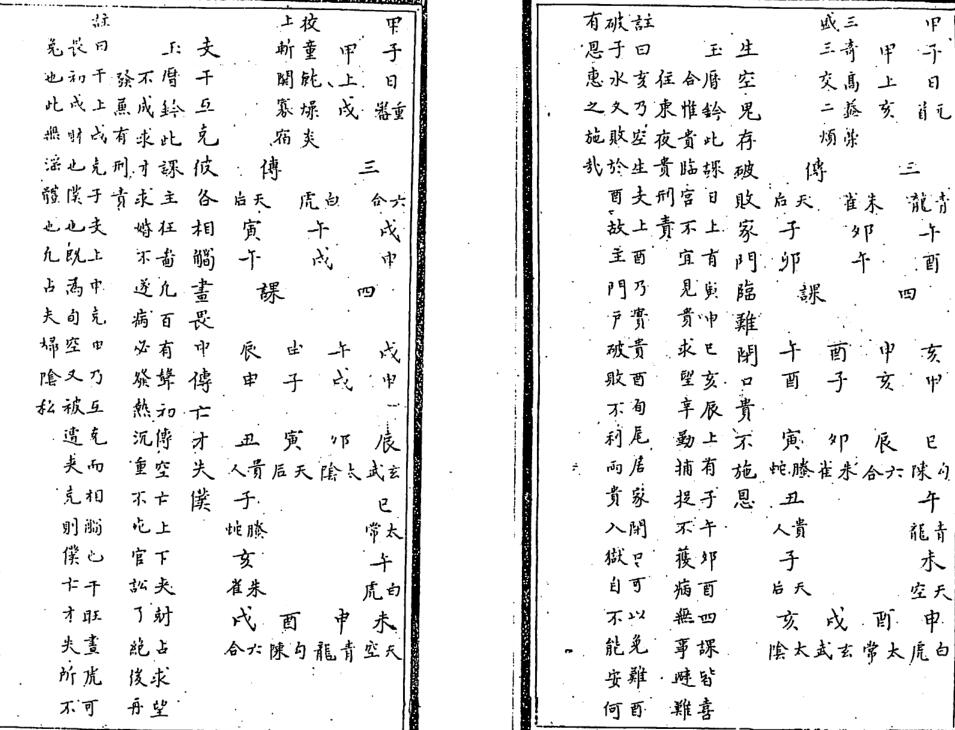 甲子日 元首
甲上亥
三奇高蓋榮
三交二煩
三傳
青龍 朱雀 天后
午 卯 子
酉 午 卯
四課
亥 申 酉 午
甲 亥 子 酉
巳 辰 卯 寅
勾陳 六合 朱雀 螣蛇
午 丑
青龍 貴人
未 子
天空 天后
申 酉 戌 亥
白虎 太常 玄武 太陰
生空鬼存破敗家門臨難閉口貴不施恩
玉曆鈐此課日上有寅申巳亥辰上有子午卯酉四課皆喜
合惟貴臨宮不宜見貴求望辛勤捕捉不獲病無事難
往東夜貴刑責
註曰亥乃空生夫上酉乃實貴酉旬尾居家閉口可以免難酉
破子水久敗於酉故主門戶破敗不利而貴入獄自不能安何
有恩惠之施哉
甲子日 重審
甲上戌
狡童燥炎
上斬關寡宿
三傳
六合 白虎 天后
戌 午 寅
甲 戌 午
四課
戌 午 申 辰
甲 戌 子 申
辰 卯 寅 丑
玄武 太陰 天后 貴人
巳 子
太常 螣蛇
午 亥
白虎 朱雀
未 申 酉 戌
天空 青龍 勾陳 六合
夫干互克彼各相觸畫畏申傳亡才失僕
玉曆鈐此課主狂啚凡百有聲初傳空亡上下夾財占求望
不成求才求婚不遂病必發熱沉重不吃官訟了絕後再
發無有刑責
註曰干上戌克子夫上申克甲乃互克而相觸也干旺畫虎可
畏初戌財也僕也既為旬空又被遭夾克則僕亡才失所不
免也此無淫體也凡占夫婦陰私